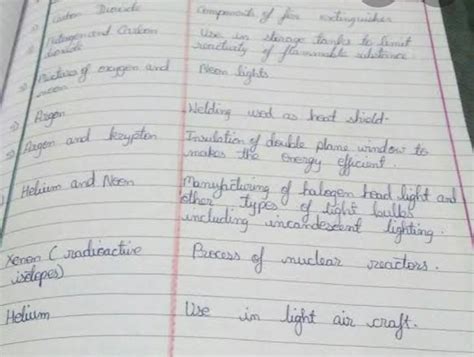 Carbon Dioxide Components of fire extinguisher
Nitrogen and Carbon Use in storage tanks to limit
dioxide reactivity of flammable substance
Mixture of oxygen and Neon lights
neon
Argon Welding used as heat shield.
Argon and krypton Insulation of double plane window to
makes the energy efficient.
Helium and Neon Manufacturing of halogen head light and
other types of light bulbs
including incandescent lighting.
Xenon (radioactive Process of nuclear reactors.
isotopes)
Helium Use in light air craft.